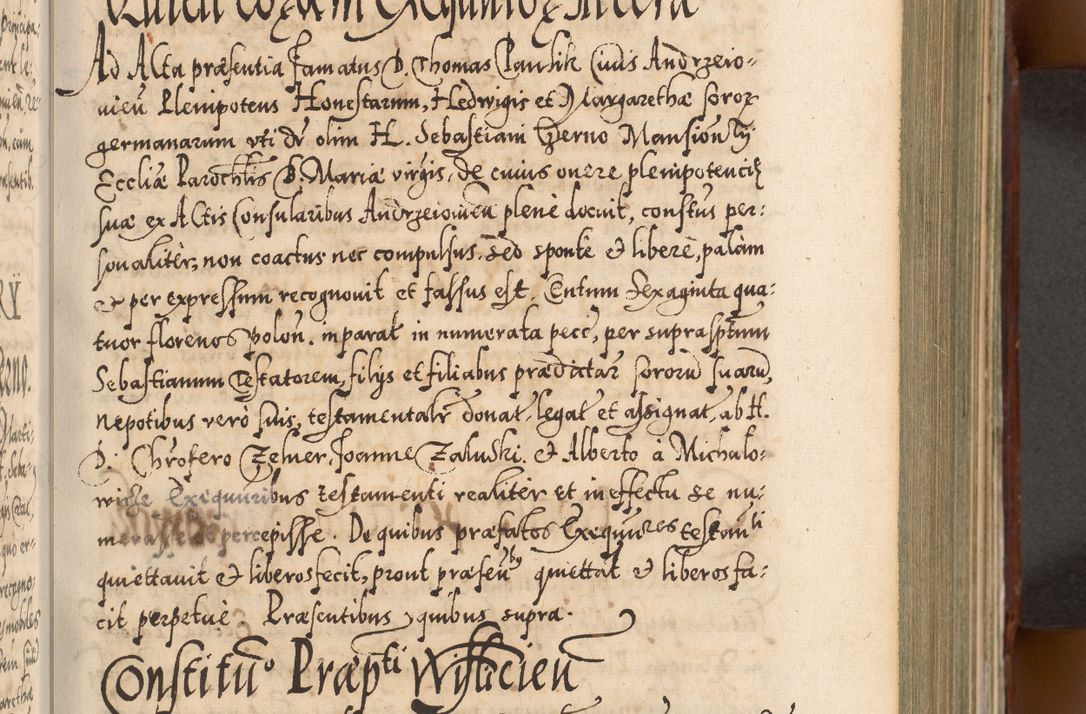 Ad Acta præsentia famatus D. Thomas Pauslik Ciuis Andrzeio-
uieñ Plenipotens Honestarum, Hedwigis et Margarethæ soror
germanarum vti dr olim H. Sebastiani Czerno Mansionrij
Eccliæ Parochlis B. Mariæ virgis, de cuius onere plenipotenciæ
suæ ex Actis Consularibus Andrzeiouieñ plenè docuit, constus per:
sonalitèr, non coactus nec compulsus, sed sponte & liberè, palàm
& per expressum recognouit et fassus est. Centum Sexaginta qua:
tuor florenos Polon. in parat in numerata pecc, per suprasptum
Sebastianum Testatorem, filijs et filiabus prædictar sororũ suarũ,
nepotibus verò suis, testamentalr donat legat et assignat, ab H.
D. Chrofero Zelner, Joanne Zaluski. & Alberto à Michalo:
wicze Exequuribus testamenti realitèr et in effectu se nu:
merasse percepisse. De quibus præfatos Exequures testaũti
quiettauit & liberos fecit, prout præseubus quiettat & liberos fa:
cit perpetuè Præsentibus quibus supra.
Constituo Præpti Wislicieñ